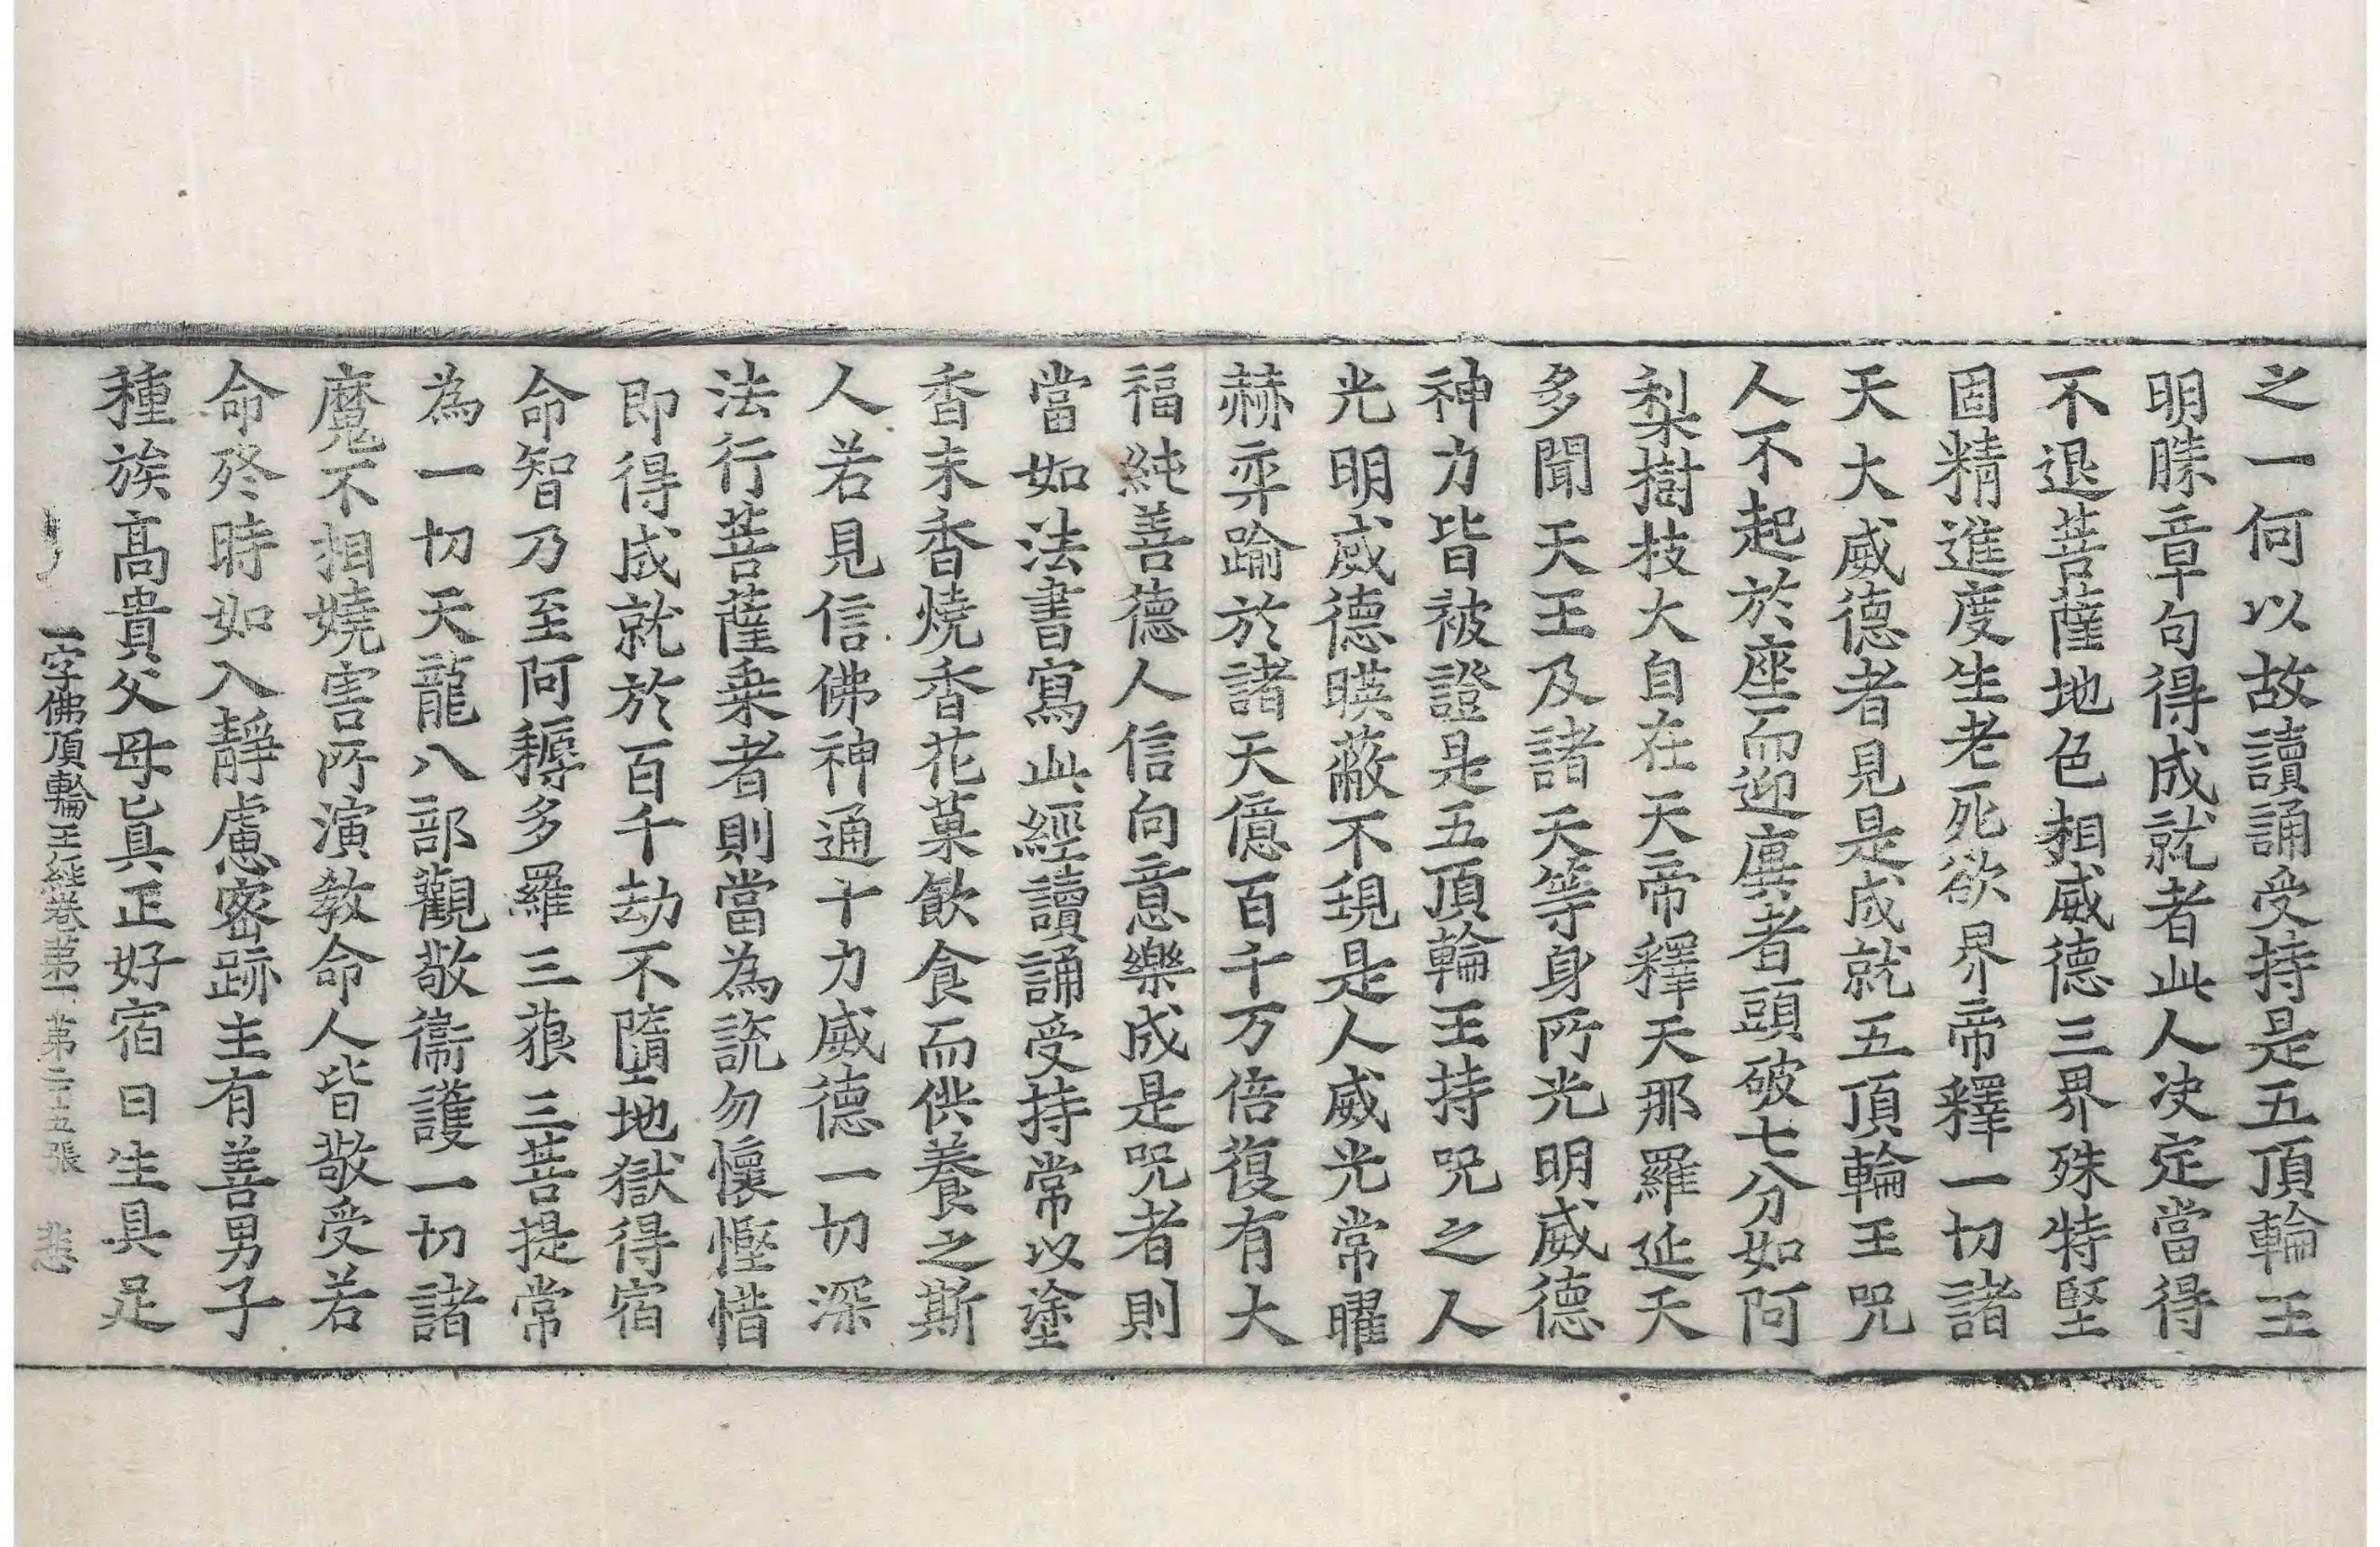 之一何以故讀誦受持是五頂輪王
明䏻章句得成就者此人决定當得
不退菩薩地色相威德三界殊特堅
固精進度生老死欲界帝釋一切諸
天大威德者見是成就五頂輪王呪
人不起於座而迎㢲者頭破七分如阿
梨樹枝大自在天帝釋天那羅延天
多聞天王及諸天等身所光明威德
神力皆被證是五頂輪王持呪之人
光明威德暎蔽不現是人威光常曜
赫弈踰於諸天億百千万倍復有大
福純善德人信向意樂成是呪者則
當如法書寫此經讀誦受持常以塗
香末香燒香花菓飲食而供養之斯
人若見信佛神通十力威德一切深
法行菩薩乗者則當為說勿懷慳惜
即得成就於百千劫不墮地獄得宿
命智乃至阿耨多羅三藐三菩提常
為一切天龍八部觀敬衞護一切諸
魔不相嬈害所演教命人皆敬受若
命終時如入靜慮密跡主有善男子
種族高貴父母真正好宿日生具足
一字佛頂輪王經卷第一 第二十五張 悲